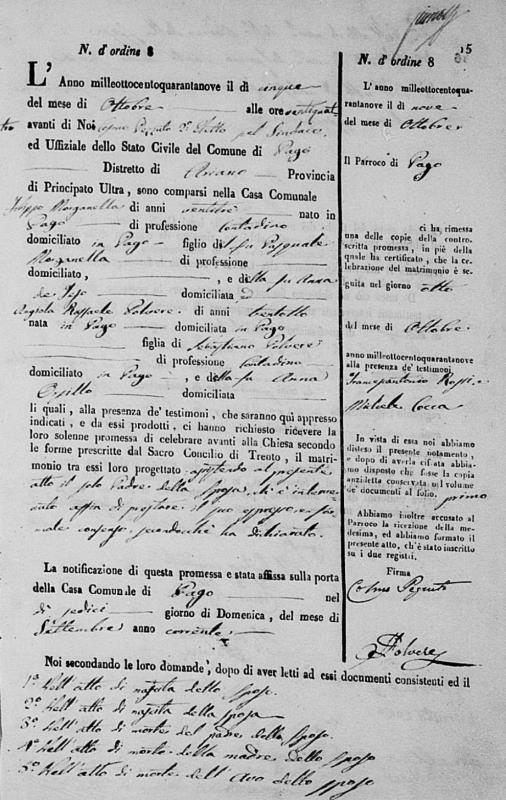 15
N. d'ordine 8
L' Anno milleottocentoquarantanove il dì cinque
del mese di Ottobre alle ore
avanti di Noi Cosmo Perruto Eletto pel Sindaco
ed Uffiziale dello Stato Civile del Comune di Pago
Distretto di Ariano Provincia
di Principato Ultra, sono comparsi nella Casa Comunale
Filippo Morganella di anni ventitre nato in
Pago di professione Contadino
domiciliato in Pago figlio di fu Pasquale
Morganella di professione
domiciliato, , e della fu Anna
de domiciliata
Angiola Raffaele Polvere di anni trentotto
nata in Pago domiciliata in Pago
figlia di Sebastiano Polvere
di professione Contadino
domiciliato in Pago , e della fu Anna
domiciliata
li quali, alla presenza de' testimoni, che saranno quì appresso
indicati, e da essi prodotti, ci hanno richiesto ricevere la
loro solenne promessa di celebrare avanti alla Chiesa secondo
le forme prescritte dal Sacro Concilio di Trento, il matri-
monio tra essi loro progettato al presente
atto il solo Padre della sposa, che è interve-
nuto affin di prestare il suo espresso e for-
male consenso, secondochè ha dichiarato.
La notificazione di questa promessa e stata affissa sulla porta
della Casa Comunale di Pago nel
dì sedici giorno di Domenica, del mese di
Settembre anno corrente
Noi secondando le loro domande, dopo di aver letti ad essi documenti consistenti ed il
1º Nell'atto di nascita dello sposo.
2º Nell'atto di nascita della sposa
3º Nell'atto di morte del padre dello sposo.
4º Nell'atto di morte della madre dello sposo
5º Nell'atto di morte dell'Avo dello sposo
N. d'ordine 8
L'anno milleottocentoqua-
rantanove il dì nove
del mese di Ottobre
Il Parroco di Pago
ci ha rimessa
una delle copie della contro-
scritta promessa, in piè della
quale ha certificato, che la ce-
lebrazione del matrimonio è se-
guita nel giorno otto
del mese di Ottobre
anno milleottocentoquarantanove
alla presenza de' testimoni
Francescantonio Rossi, e
Michele Cocca
In vista di essa noi abbiamo
disteso il presente notamento,
e dopo di averla cifrata abbia-
mo disposto che fosse la copia
anzidetta conservata nel volume
de' documenti al folio, primo
Abbiamo inoltre accusato al
Parroco la ricezione della me-
desima, ed abbiamo formato il
presente atto, ch'è stato inscritto
su i due registri.
Firma
Cosmo Perruto
Polvere